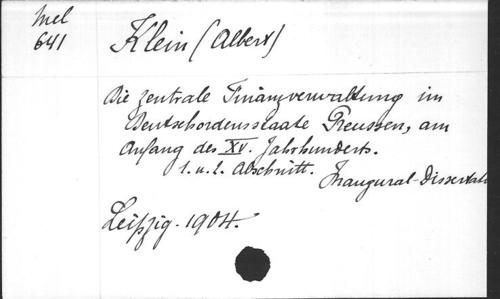 Mel
641
Klein (Albert)
Die zentrale Finanzverwaltung im
Deutschordensstaate Preussen, am
Anfang des XV. Jahrhunderts.
1. u. 2. Abschnitt. Inaugural-Dissertati
Leipzig. 1904.